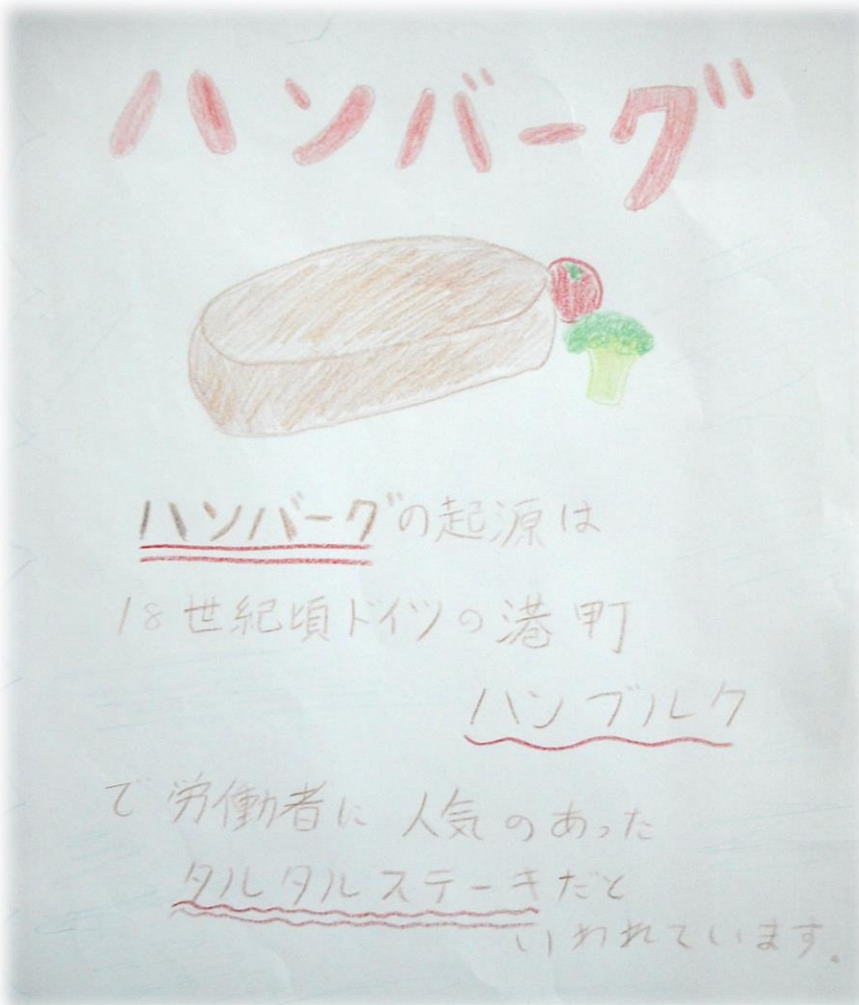 ハンバーグ
ハンバーグの起源は
18世紀頃ドイツの港町
ハンブルク
で労働者に人気のあった
タルタルステーキだと
いわれています。